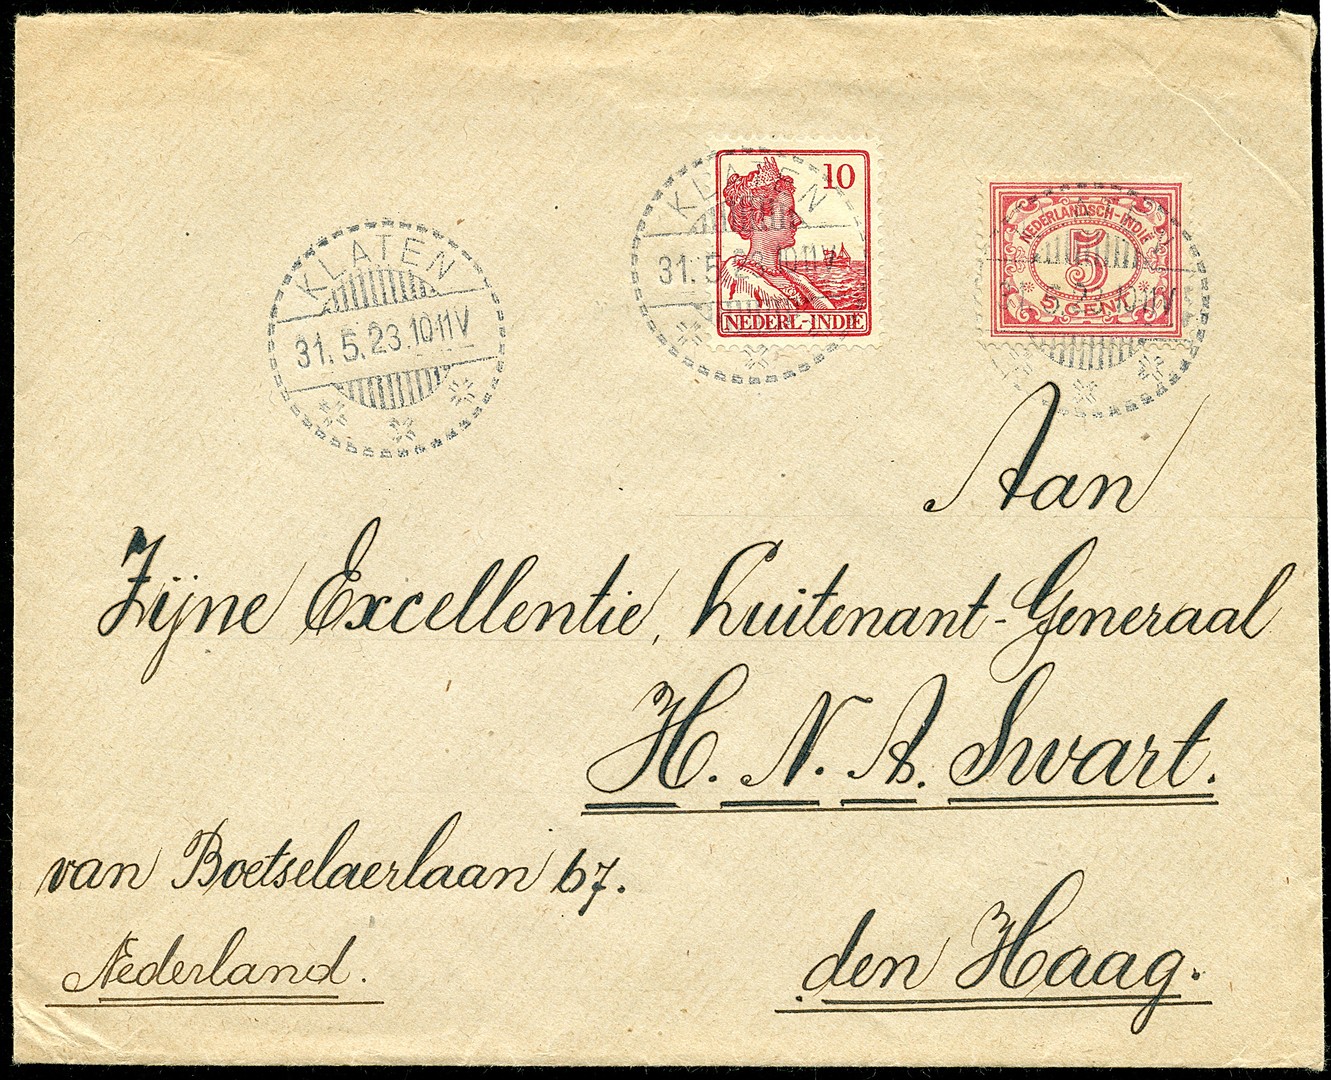 KLATEN
31.5.23.10-11V
KLATEN
31.5.23.10-11V
10
NEDERL-INDIË
NEDERLANDSCH-INDIË
5
5 CENT
Aan
Zijne Excellentie, Luitenant-Generaal
H. N. A. Swart.
van Boetselaerlaan 67.
den Haag.
Nederland.